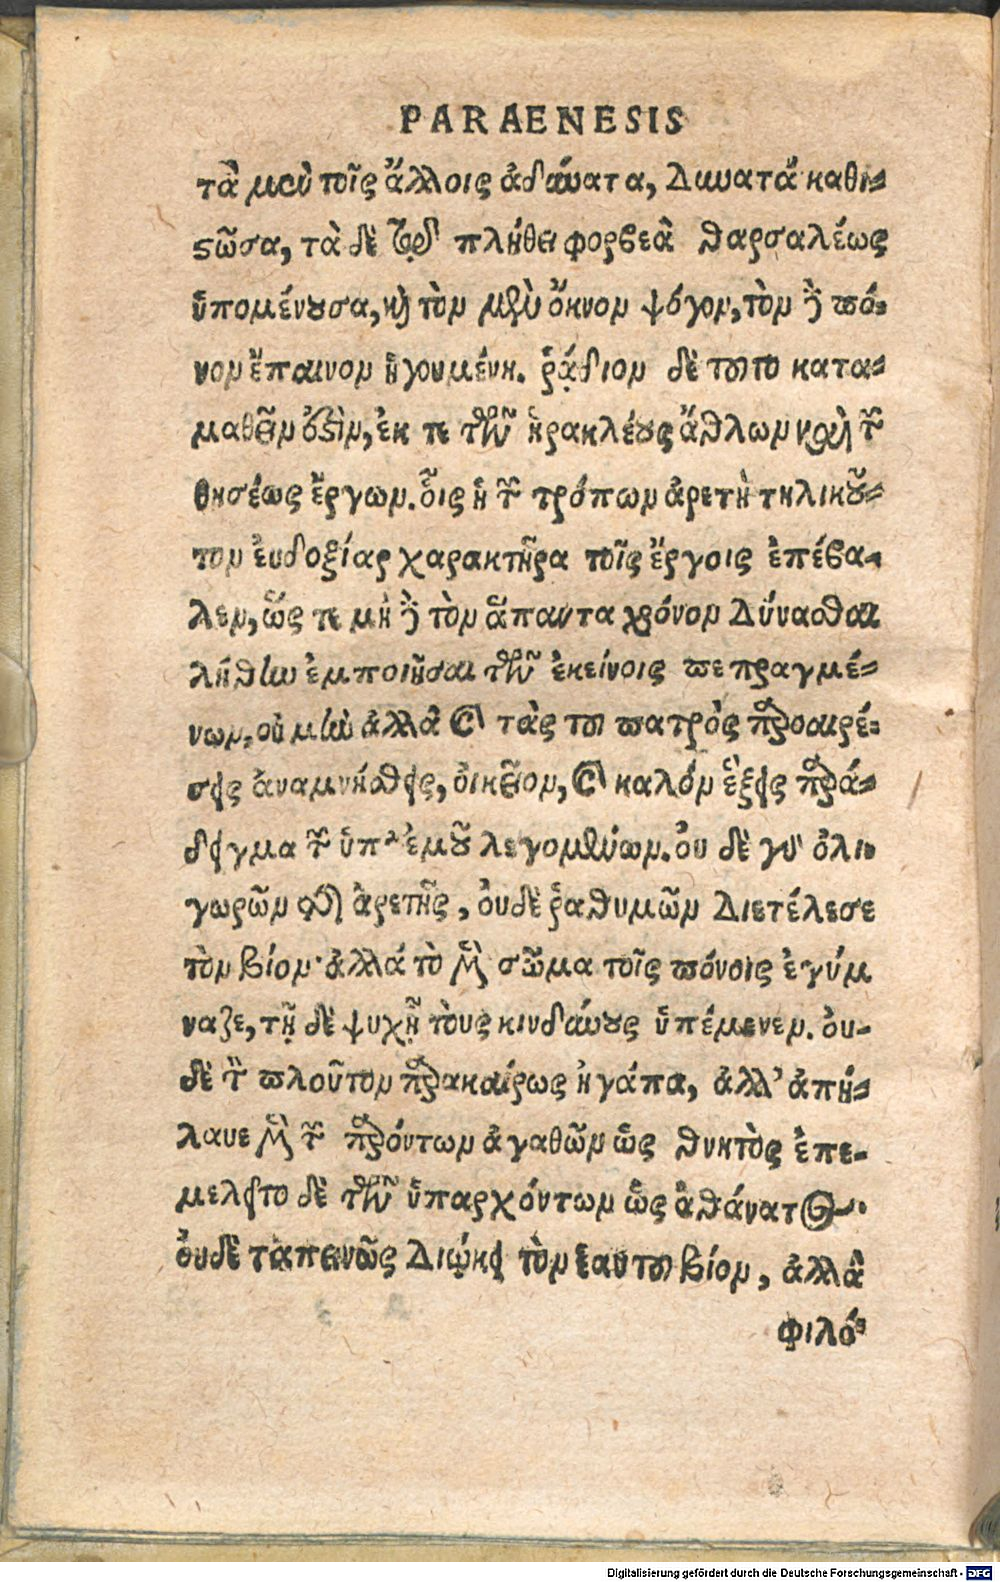 PARAENESIS
τὰ μὲν τοῖς ἄλλοις ἀδύνατα, δυνατὰ καθι-
στῶσα, τὰ δὲ τῷ πλήθει φορβεὰ θαρσαλέως
ὑπομένουσα, καὶ τὸν μὲν ὄκνον ψόγον, τὸν δὲ πό-
νον ἔπαινον ἡγουμένη. ῥᾴδιον δὲ τοῦτο κατα-
μαθεῖν ἐστὶν, ἔκ τε τῶν ἡρακλέους ἄθλων καὶ τῶν
θησέως ἔργων. οἷς ἡ τῶν τρόπων ἀρετὴ τηλικοῦ-
τον ἐυδοξίας χαρακτῆρα τοῖς ἔργοις ἐπέβα-
λεν, ὥς τε μὴ δὲ τὸν ἅπαντα χρόνον δύνασθαι
λήθην ἐμποιῆσαι τῶν ἐκείνοις πεπραγμέ-
νων. οὐ μὴν ἀλλὰ καὶ τὰς τοῦ πατρὸς προαιρέ-
σεις ἀναμνησθεὶς, ὀικεῖον, καὶ καλὸν ἕξεις παρά-
δειγμα τῶν ὑπ' ἐμοῦ λεγομένων. ὀυ δὲ γὰρ ὀλι-
γωρῶν τῆς ἀρετῆς, ὀυδὲ ῥαθυμῶν διετέλεσε
τὸν βίον· ἀλλὰ τὸ μὲν σῶμα τοῖς πόνοις ἐγύμ
ναζε, τῇ δὲ ψυχῇ τοὺς κινδύνους ὑπέμενεν. ὀυ-
δὲ τὸν πλοῦτον παρακαίρως ἠγάπα, ἀλλ' ἀπή-
λαυε μὲν τῶν παρόντων ἀγαθῶν ὡς θνητὸς ἐπε-
μελεῖτο δὲ τῶν ὑπαρχόντων ὡς ἀθάνατος.
ὀυδὲ ταπεινῶς διῴκει τὸν ἑαυτοῦ βίον, ἀλλὰ
φιλό-
Digitalisierung gefördert durch die Deutsche Forschungsgemeinschaft - DFG